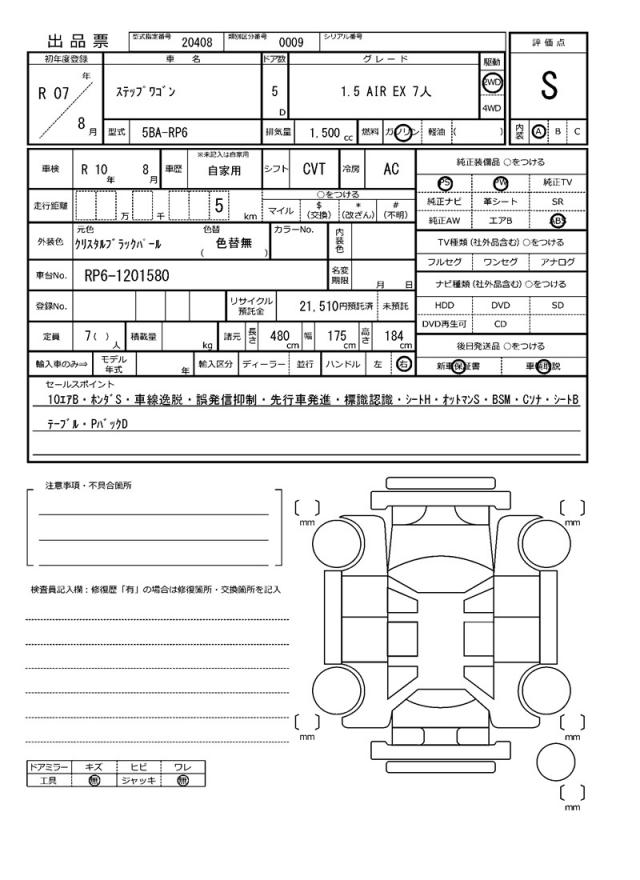 出品票 型式指定番号 20408 類別区分番号 0009 シリアル番号
評価点
S
初年度登録 車名 ドア数 グレード 駆動
R 07 年 8 月
ステップワゴン 5 D 1.5 AIR EX 7人 2WD
4WD
型式 5BA-RP6 排気量 1.500 cc 燃料 ガソリン 軽油 ( )
内装 A B C
車検 R 10 年 8 月 車歴 ※未記入は自家用 自家用 シフト CVT 冷房 AC
純正装備品 ○をつける
PS PW 純正TV
純正ナビ 革シート SR
純正AW エアB ABS
走行距離 万 千 5 km
○をつける
マイル $ (交換) * (改ざん) # (不明)
外装色 元色 クリスタルブラックパール 色替 ( 色替無 ) カラーNo. 内装色
TV種類 (社外品含む) ○をつける
フルセグ ワンセグ アナログ
車台No. RP6-1201580 名変期限 月 日
ナビ種類 (社外品含む) ○をつける
HDD DVD SD
DVD再生可 CD
登録No. リサイクル預託金 21,510円預託済 未預託
定員 7 ( ) 人 積載量 kg 諸元 長さ 480 cm 幅 175 cm 高さ 184 cm
後日発送品 ○をつける
新車保証書 車輌取説
輸入車のみ⇒ モデル年式 年 輸入区分 ディーラー 並行 ハンドル 左 右
セールスポイント
10エアB・ホンダS・車線逸脱・誤発信抑制・先行車発進・標識認識・シートH・オットマンS・BSM・Cソナ・シートB
テーブル・PバックD
注意事項・不具合箇所
mm
mm
検査員記入欄：修復歴「有」の場合は修復箇所・交換箇所を記入
mm
mm
ドアミラー キズ ヒビ ワレ
工具 無 ジャッキ 無
mm